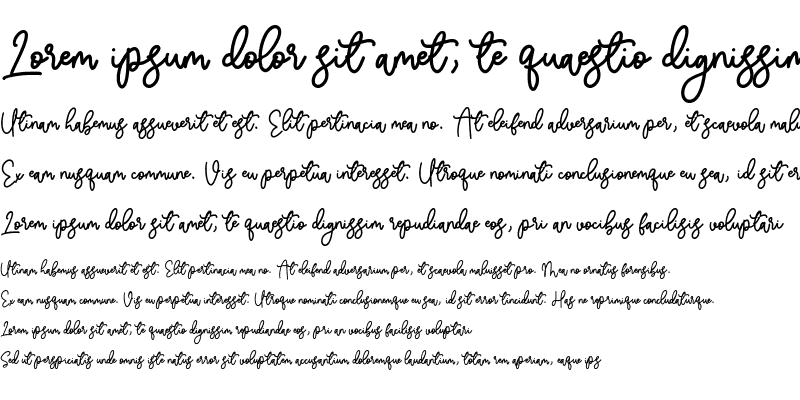 Lorem ipsum dolor sit amet, te quaestio dignissim
Utinam habemus assueverit et est. Elit pertinacia mea no. At eleifend adversarium per, et scaevola malu
Ex eam nusquam commune. Vis eu perpetua interesset. Utroque nominati conclusionemque eu sea, id sit er
Lorem ipsum dolor sit amet, te quaestio dignissim repudiandae eos, pri an vocibus facilisis voluptari
Utinam habemus assueverit et est. Elit pertinacia mea no. At eleifend adversarium per, et scaevola maluisset pro. Mea no ornatus forensibus.
Ex eam nusquam commune. Vis eu perpetua interesset. Utroque nominati conclusionemque eu sea, id sit error tincidunt. Has ne reprimique concludaturque.
Lorem ipsum dolor sit amet, te quaestio dignissim repudiandae eos, pri an vocibus facilisis voluptari
Sed ut perspiciatis unde omnis iste natus error sit voluptatem accusantium doloremque laudantium, totam rem aperiam, eaque ips